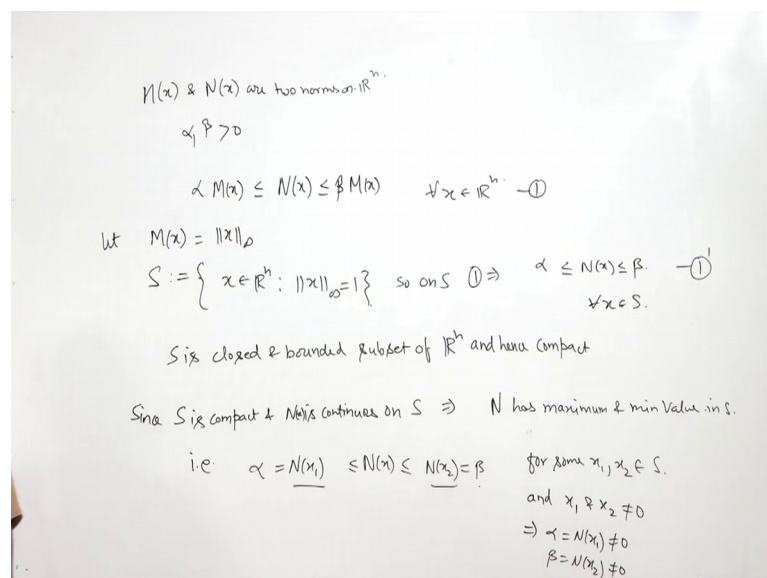 M(x) & N(x) are two norms on ℝⁿ.
α, β > 0
α M(x) ≤ N(x) ≤ β M(x) ∀ x ∈ ℝⁿ. —①
let M(x) = ||x||∞
S := { x ∈ ℝⁿ : ||x||∞ = 1 } so on S ① ⇒ α ≤ N(x) ≤ β. —①'
∀ x ∈ S.
S is closed & bounded subset of ℝⁿ and hence compact
Since S is compact & N(x) is continues on S ⇒ N has maximum & min value in S.
i.e. α = N(x₁) ≤ N(x) ≤ N(x₂) = β for some x₁, x₂ ∈ S.
and x₁ & x₂ ≠ 0
⇒ α = N(x₁) ≠ 0
β = N(x₂) ≠ 0